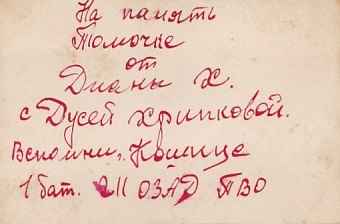 На память
Томочке
от
Дианы Х.
с Дусей Хрипковой.
Вспомни, Кошице
1 бат. 211 ОЗАД ПВО